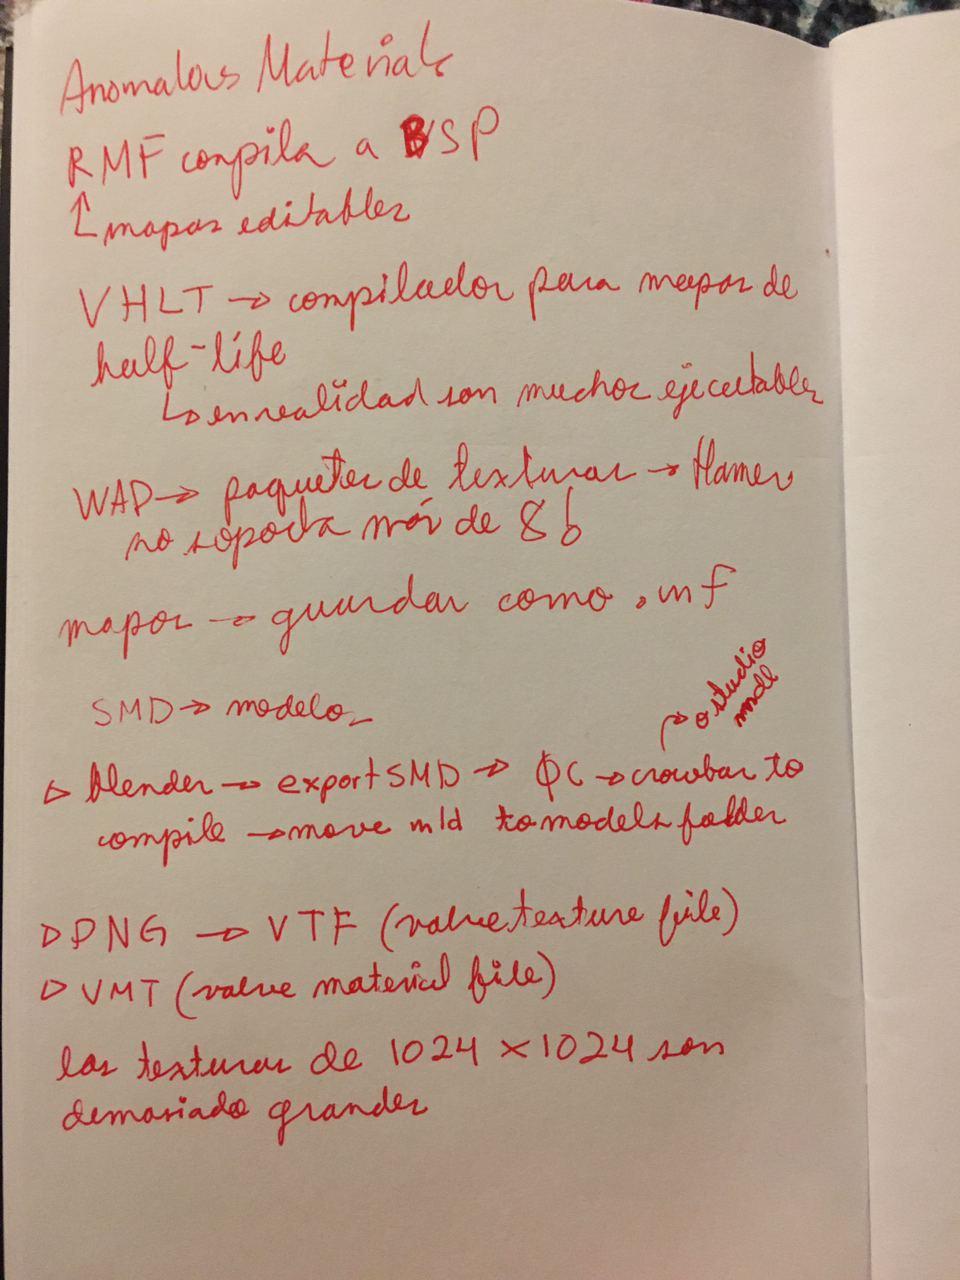 Anomalous Materials
RMF compila a BSP
↑ mapas editables
VHLT → compilador para mapas de
half-life
↳ en realidad son muchos ejecutables
WAD → paquetes de texturas → Hamer
no soporta más de 8 b
mapas → guardar como .rmf
SMD → modelos
→ o studio
mdl
▷ blender → export SMD → QC → crowbar to
compile → move mld to models folder
▷ PNG → VTF (valve texture file)
▷ VMT (valve material file)
las texturas de 1024 × 1024 son
demasiado grandes